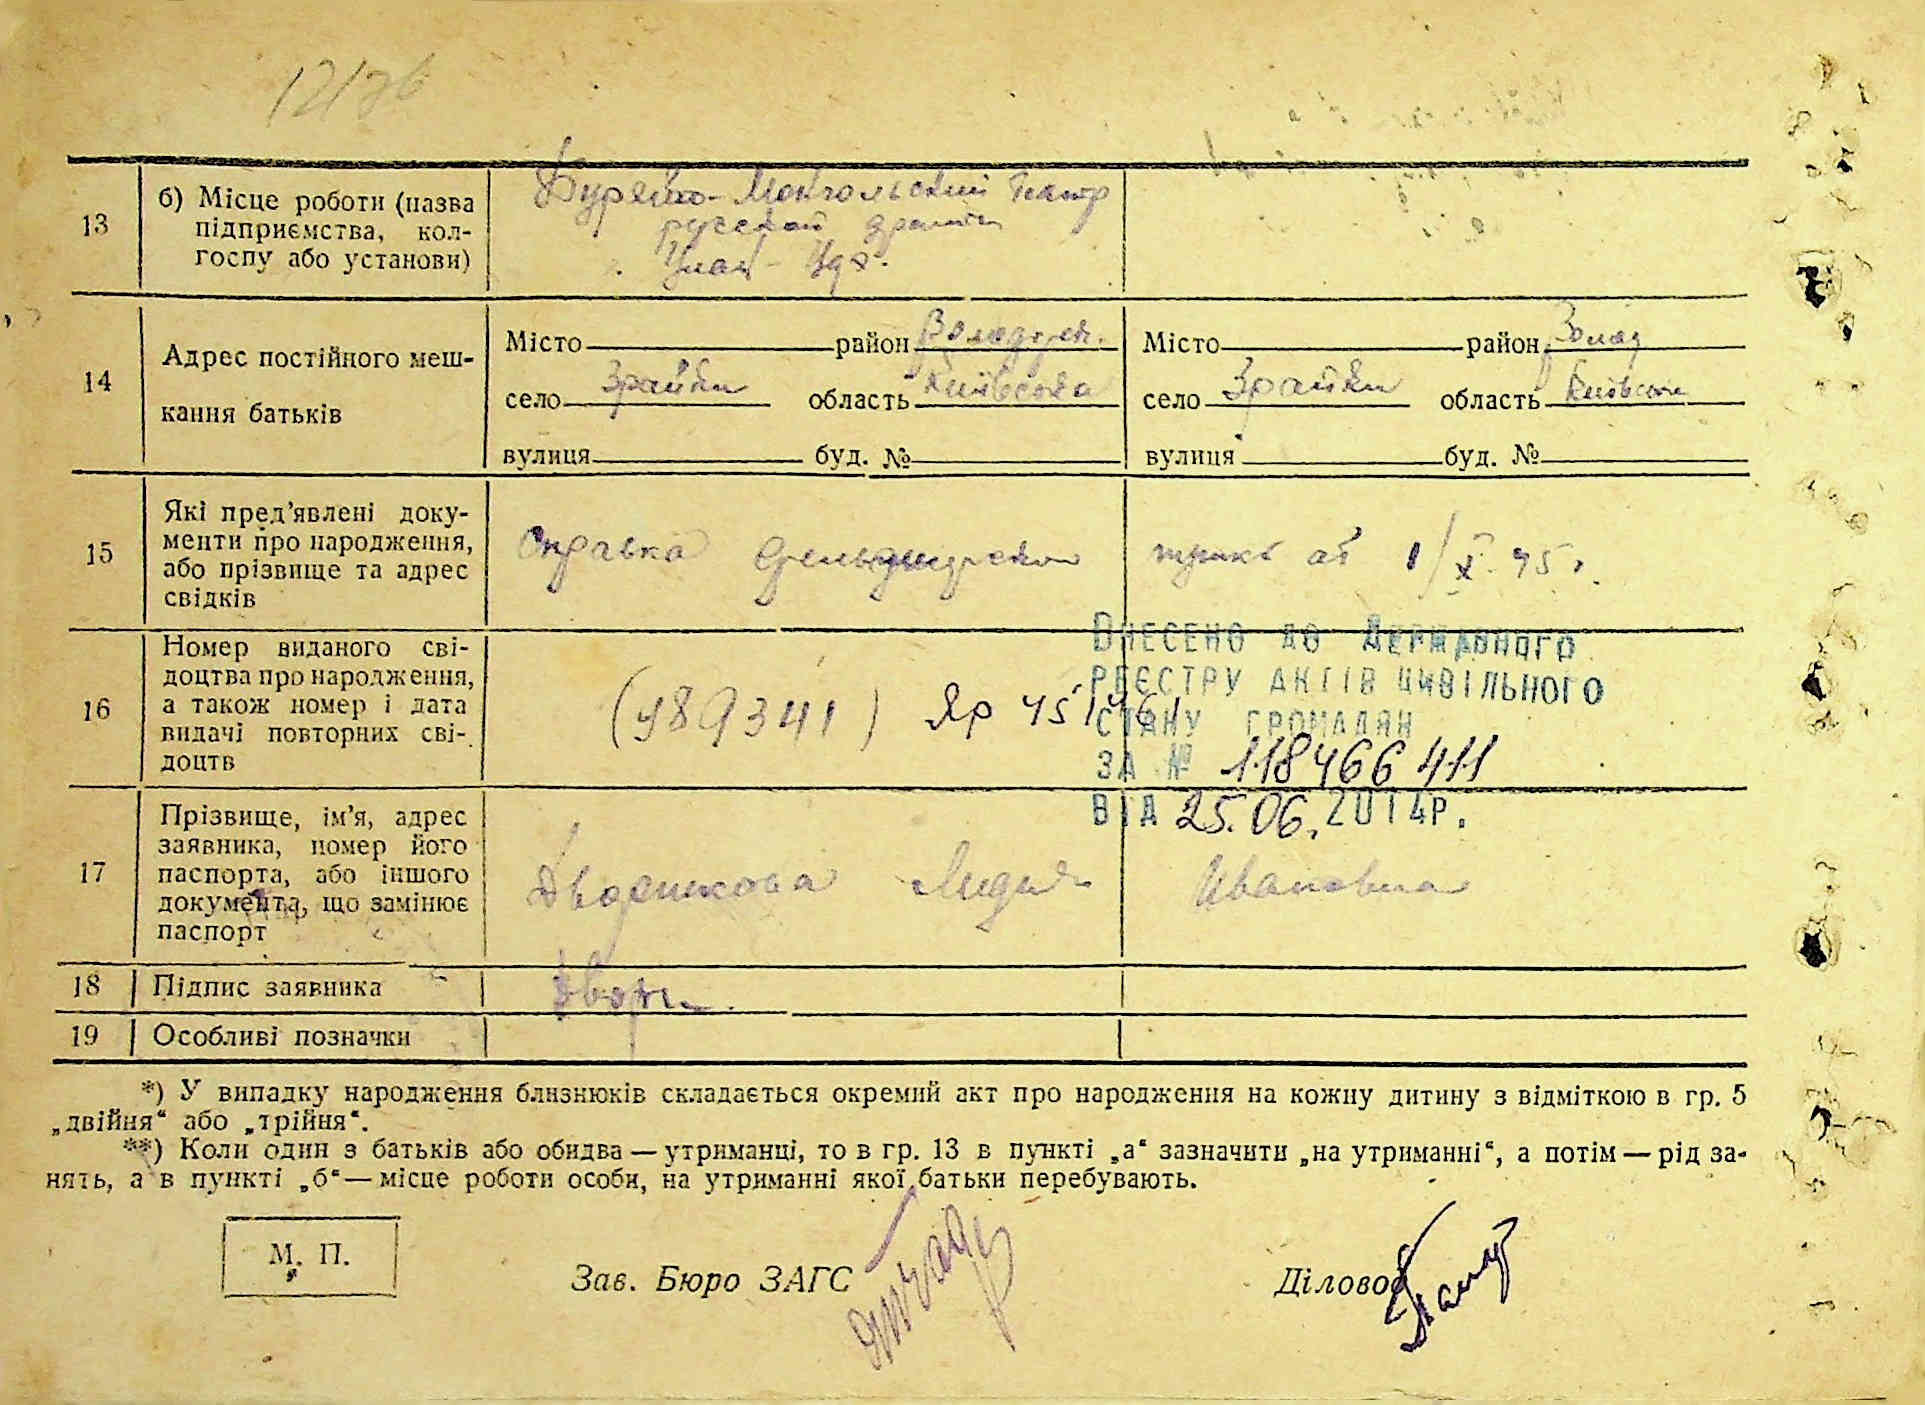 12/36
13 б) Місце роботи (назва підприємства, колгоспу або установи)
Бурято-Монгольский театр
русской драмы
г. Улан-Удэ.
14 Адрес постійного мешкання батьків
Місто район Володарск. Місто район Волод
село Зрайки область Київська село Зрайки область Київська
вулиця буд. № вулиця буд. №
15 Які пред’явлені документи про народження, або прізвище та адрес свідків
Справка фельдшерского пункт от 1/X. 45 г.
16 Номер виданого свідоцтва про народження, а також номер і дата видачі повторних свідоцтв
(489341) Яр
Внесено до Державного
реєстру актів цивільного
стану громадян
за № 118466411
від 25.06.2014р.
17 Прізвище, ім’я, адрес заявника, номер його паспорта, або іншого документа, що замінює паспорт
Дворникова Лидия Ивановна
18 Підпис заявника
19 Особливі позначки
*) У випадку народження близнюків складається окремий акт про народження на кожну дитину з відміткою в гр. 5
„двійня“ або „трійня“.
**) Коли один з батьків або обидва — утриманці, то в гр. 13 в пункті „а“ зазначити „на утриманні“, а потім — рід за-
нять, а в пункті „б“ — місце роботи особи, на утриманні якої батьки перебувають.
М. П.
Зав. Бюро ЗАГС Діловод